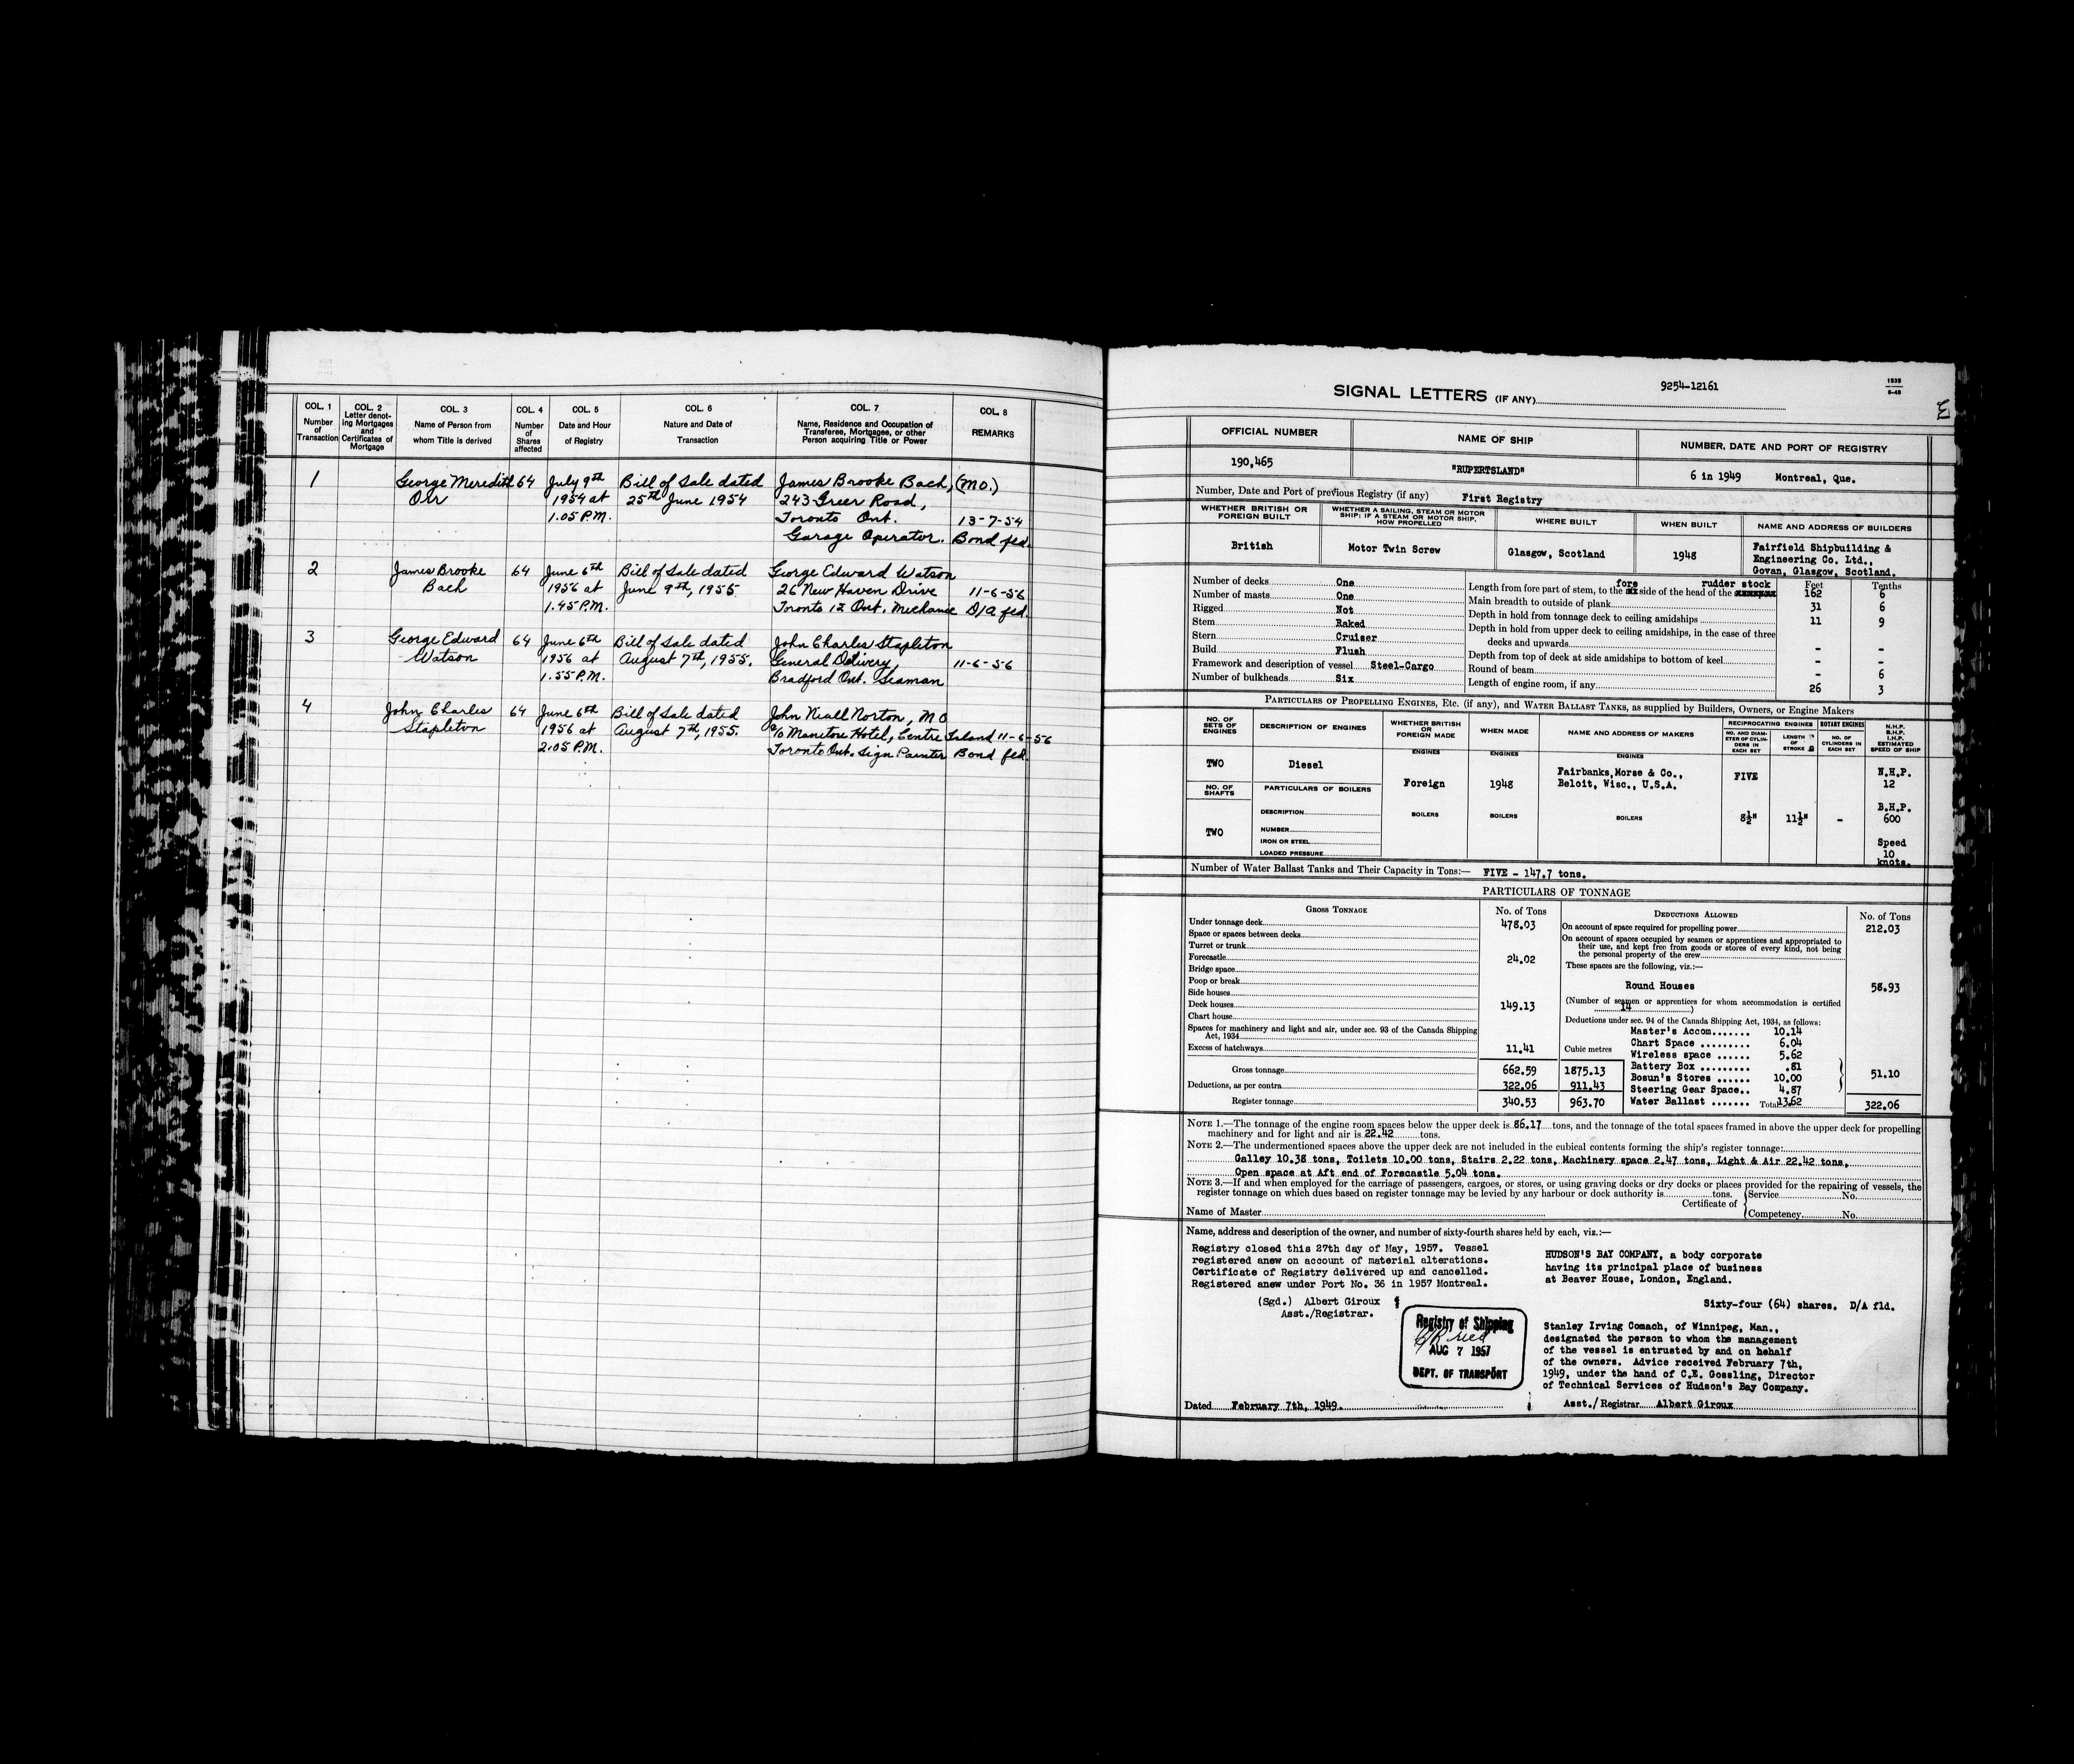 COL. 1
Number
of
Transaction
COL. 2
Letter denot-
ing Mortgages
and
Certificates of
Mortgage
COL. 3
Name of Person from
whom Title is derived
COL. 4
Number
of
Shares
affected
COL. 5
Date and Hour
of Registry
COL. 6
Nature and Date of
Transaction
COL. 7
Name, Residence and Occupation of
Transferee, Mortgagee, or other
Person acquiring Title or Power
COL. 8
REMARKS
1 George Meredith 64 July 9th Bill of Sale dated James Brooke Bach, (M.O.)
Orr 1954 at 25th June 1954 243 Greer Road,
1.05 P.M. Toronto Ont. 13-7-54
Garage Operator. Bond fld.
2 James Brooke 64 June 6th Bill of Sale dated George Edward Watson
Bach 1956 at June 9th, 1955 26 New Haven Drive 11-6-56
1.45 P.M. Toronto 12 Ont. Mechanic D/A fld.
3 George Edward 64 June 6th Bill of Sale dated John Charles Stapleton
Watson 1956 at August 7th, 1955. General Delivery, 11-6-56
1.55 P.M. Bradford Ont. Seaman
4 John Charles 64 June 6th Bill of Sale dated John Niall Norton, M O
Stapleton 1956 at August 7th, 1955. c/o Manitou Hotel, Centre Island 11-6-56
2.05 P.M. Toronto Ont. Sign Painter Bond fld.
9254-12161
1535
6-48
SIGNAL LETTERS (IF ANY)
OFFICIAL NUMBER NAME OF SHIP NUMBER, DATE AND PORT OF REGISTRY
190,465 "RUPERTSLAND" 6 in 1949 Montreal, Que.
Number, Date and Port of previous Registry (if any) First Registry
WHETHER BRITISH OR
FOREIGN BUILT
WHETHER A SAILING, STEAM OR MOTOR
SHIP; IF A STEAM OR MOTOR SHIP,
HOW PROPELLED
WHERE BUILT
WHEN BUILT
NAME AND ADDRESS OF BUILDERS
British Motor Twin Screw Glasgow, Scotland 1948
Fairfield Shipbuilding &
Engineering Co. Ltd.,
Govan, Glasgow, Scotland.
Number of decks One
Number of masts One
Rigged Not
Stem Raked
Stern Cruiser
Build Flush
Framework and description of vessel Steel-Cargo
Number of bulkheads Six
fore rudder stock Feet Tenths
Length from fore part of stem, to the side of the head of the 162 6
Main breadth to outside of plank 31 6
Depth in hold from tonnage deck to ceiling amidships 11 9
Depth in hold from upper deck to ceiling amidships, in the case of three
decks and upwards - -
Depth from top of deck at side amidships to bottom of keel - -
Round of beam - 6
Length of engine room, if any 26 3
PARTICULARS OF PROPELLING ENGINES, ETC. (if any), and WATER BALLAST TANKS, as supplied by Builders, Owners, or Engine Makers
NO. OF
SETS OF
ENGINES
DESCRIPTION OF ENGINES
WHETHER BRITISH
OR
FOREIGN MADE
WHEN MADE
NAME AND ADDRESS OF MAKERS
RECIPROCATING ENGINES
ROTARY ENGINES
NO. AND DIAM-
ETER OF CYLIN-
DERS IN
EACH SET
LENGTH
OF
STROKE
NO. OF
CYLINDERS IN
EACH SET
N.H.P.
B.H.P.
I.H.P.
ESTIMATED
SPEED OF SHIP
ENGINES ENGINES ENGINES
TWO Diesel
Foreign 1948
Fairbanks, Morse & Co.,
Beloit, Wisc., U.S.A.
FIVE
N.H.P.
12
NO. OF
SHAFTS
PARTICULARS OF BOILERS
BOILERS BOILERS BOILERS
TWO
DESCRIPTION
NUMBER
IRON OR STEEL
LOADED PRESSURE
8½" 11½" -
B.H.P.
600
Speed
10
knots.
Number of Water Ballast Tanks and Their Capacity in Tons:— FIVE - 147.7 tons.
PARTICULARS OF TONNAGE
GROSS TONNAGE No. of Tons
Under tonnage deck 478.03
Space or spaces between decks
Turret or trunk
Forecastle 24.02
Bridge space
Poop or break
Side houses
Deck houses 149.13
Chart house
Spaces for machinery and light and air, under sec. 93 of the Canada Shipping
Act, 1934
Excess of hatchways 11.41 Cubic metres
Gross tonnage 662.59 1875.13
Deductions, as per contra 322.06 911.43
Register tonnage 340.53 963.70
DEDUCTIONS ALLOWED No. of Tons
On account of space required for propelling power 212.03
On account of spaces occupied by seamen or apprentices and appropriated to
their use, and kept free from goods or stores of every kind, not being
the personal property of the crew
These spaces are the following, viz.:—
Round Houses 58.93
(Number of seamen or apprentices for whom accommodation is certified
14 )
Deductions under sec. 94 of the Canada Shipping Act, 1934, as follows:
Master's Accom....... 10.14
Chart Space ......... 6.04
Wireless space ...... 5.62
Battery Box ......... .81
Bosun's Stores ...... 10.00 51.10
Steering Gear Space.. 4.87
Water Ballast ....... 13.62
Total 322.06
NOTE 1.—The tonnage of the engine room spaces below the upper deck is 86.17 tons, and the tonnage of the total spaces framed in above the upper deck for propelling
machinery and for light and air is 22.42 tons.
NOTE 2.—The undermentioned spaces above the upper deck are not included in the cubical contents forming the ship's register tonnage:
Galley 10.38 tons, Toilets 10.00 tons, Stairs 2.22 tons, Machinery space 2.47 tons, Light & Air 22.42 tons,
Open space at Aft end of Forecastle 5.04 tons.
NOTE 3.—If and when employed for the carriage of passengers, cargoes, or stores, or using graving docks or dry docks or places provided for the repairing of vessels, the
register tonnage on which dues based on register tonnage may be levied by any harbour or dock authority is tons.
Name of Master Certificate of
Service No.
Competency No.
Name, address and description of the owner, and number of sixty-fourth shares held by each, viz.:—
Registry closed this 27th day of May, 1957. Vessel
registered anew on account of material alterations.
Certificate of Registry delivered up and cancelled.
Registered anew under Port No. 36 in 1957 Montreal.
(Sgd.) Albert Giroux
Asst./Registrar.
Registry of Shipping
AUG 7 1957
DEPT. OF TRANSPORT
HUDSON'S BAY COMPANY, a body corporate
having its principal place of business
at Beaver House, London, England.
Sixty-four (64) shares. D/A fld.
Stanley Irving Comach, of Winnipeg, Man.,
designated the person to whom the management
of the vessel is entrusted by and on behalf
of the owners. Advice received February 7th,
1949, under the hand of C.E. Gossling, Director
of Technical Services of Hudson's Bay Company.
Dated February 7th, 1949.
Asst./ Registrar Albert Giroux